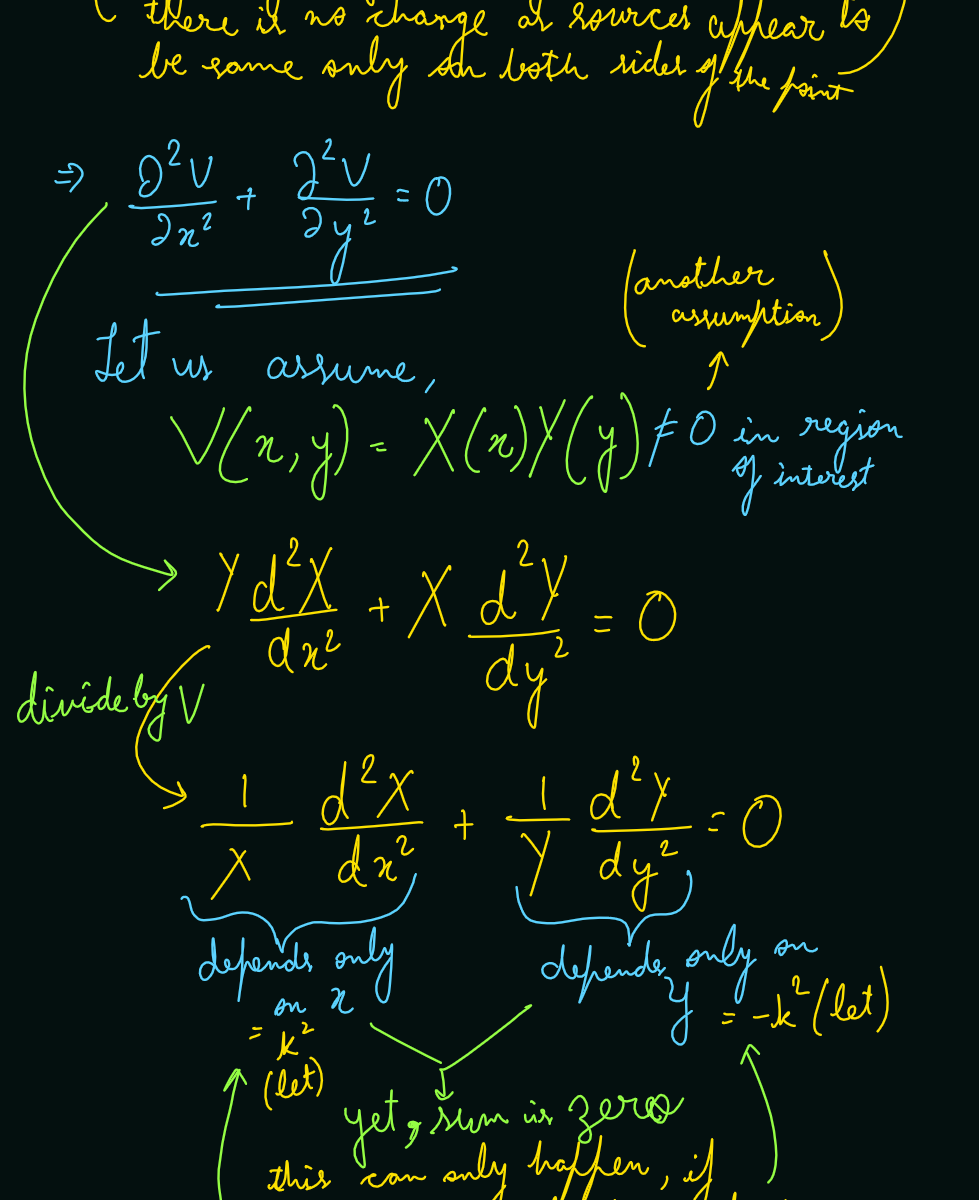 ( there is no change as sources appear to
be same only on both sides of the point )
⇒ ∂²V/∂x² + ∂²V/∂y² = 0
(another
assumption)
Let us assume,
V(x,y) = X(x)Y(y) ≠ 0 in region
of interest
Y d²X/dx² + X d²Y/dy² = 0
divide by V
1/X d²X/dx² + 1/Y d²Y/dy² = 0
depends only
on x
= k²
(let)
depends only on
y = -k² (let)
yet, sum is zero
this can only happen, if